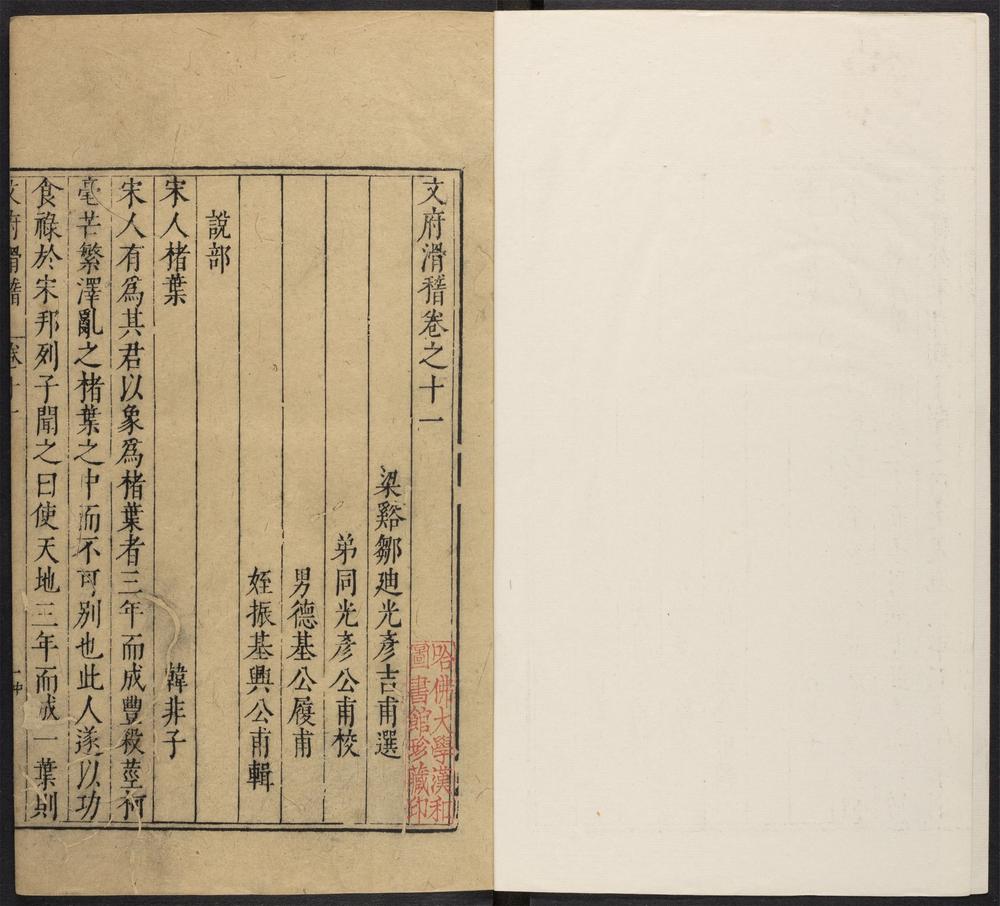 文府滑稽卷之十一
梁谿鄒廸光彥吉甫選
弟同光彥公甫校
男德基公履甫
姪振基興公甫輯
說部
宋人楮葉 韓非子
宋人有爲其君以象爲楮葉者三年而成豐殺莖柯
毫芒繁澤亂之楮葉之中而不可别也此人遂以功
食祿於宋邦列子聞之曰使天地三年而成一葉則
文府滑稽 卷十一 一
哈佛大學漢和
圖書館珍藏印